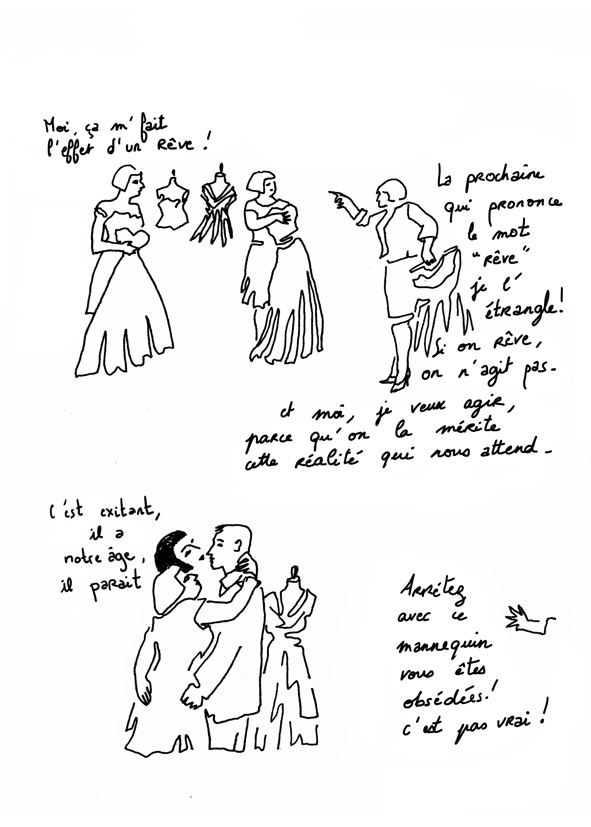 Moi, ça m'fait
l'effet d'un rêve !
La prochaine
qui prononce
le mot
"rêve"
je l'
étrangle !
Si on rêve,
on n'agit pas -
et moi, je veux agir,
parce qu'on la mérite
cette réalité qui nous attend -
C'est exitant,
il a
notre âge,
il parait
Arrétez
avec ce
mannequin
vous êtes
obsédées !
c'est pas vrai !